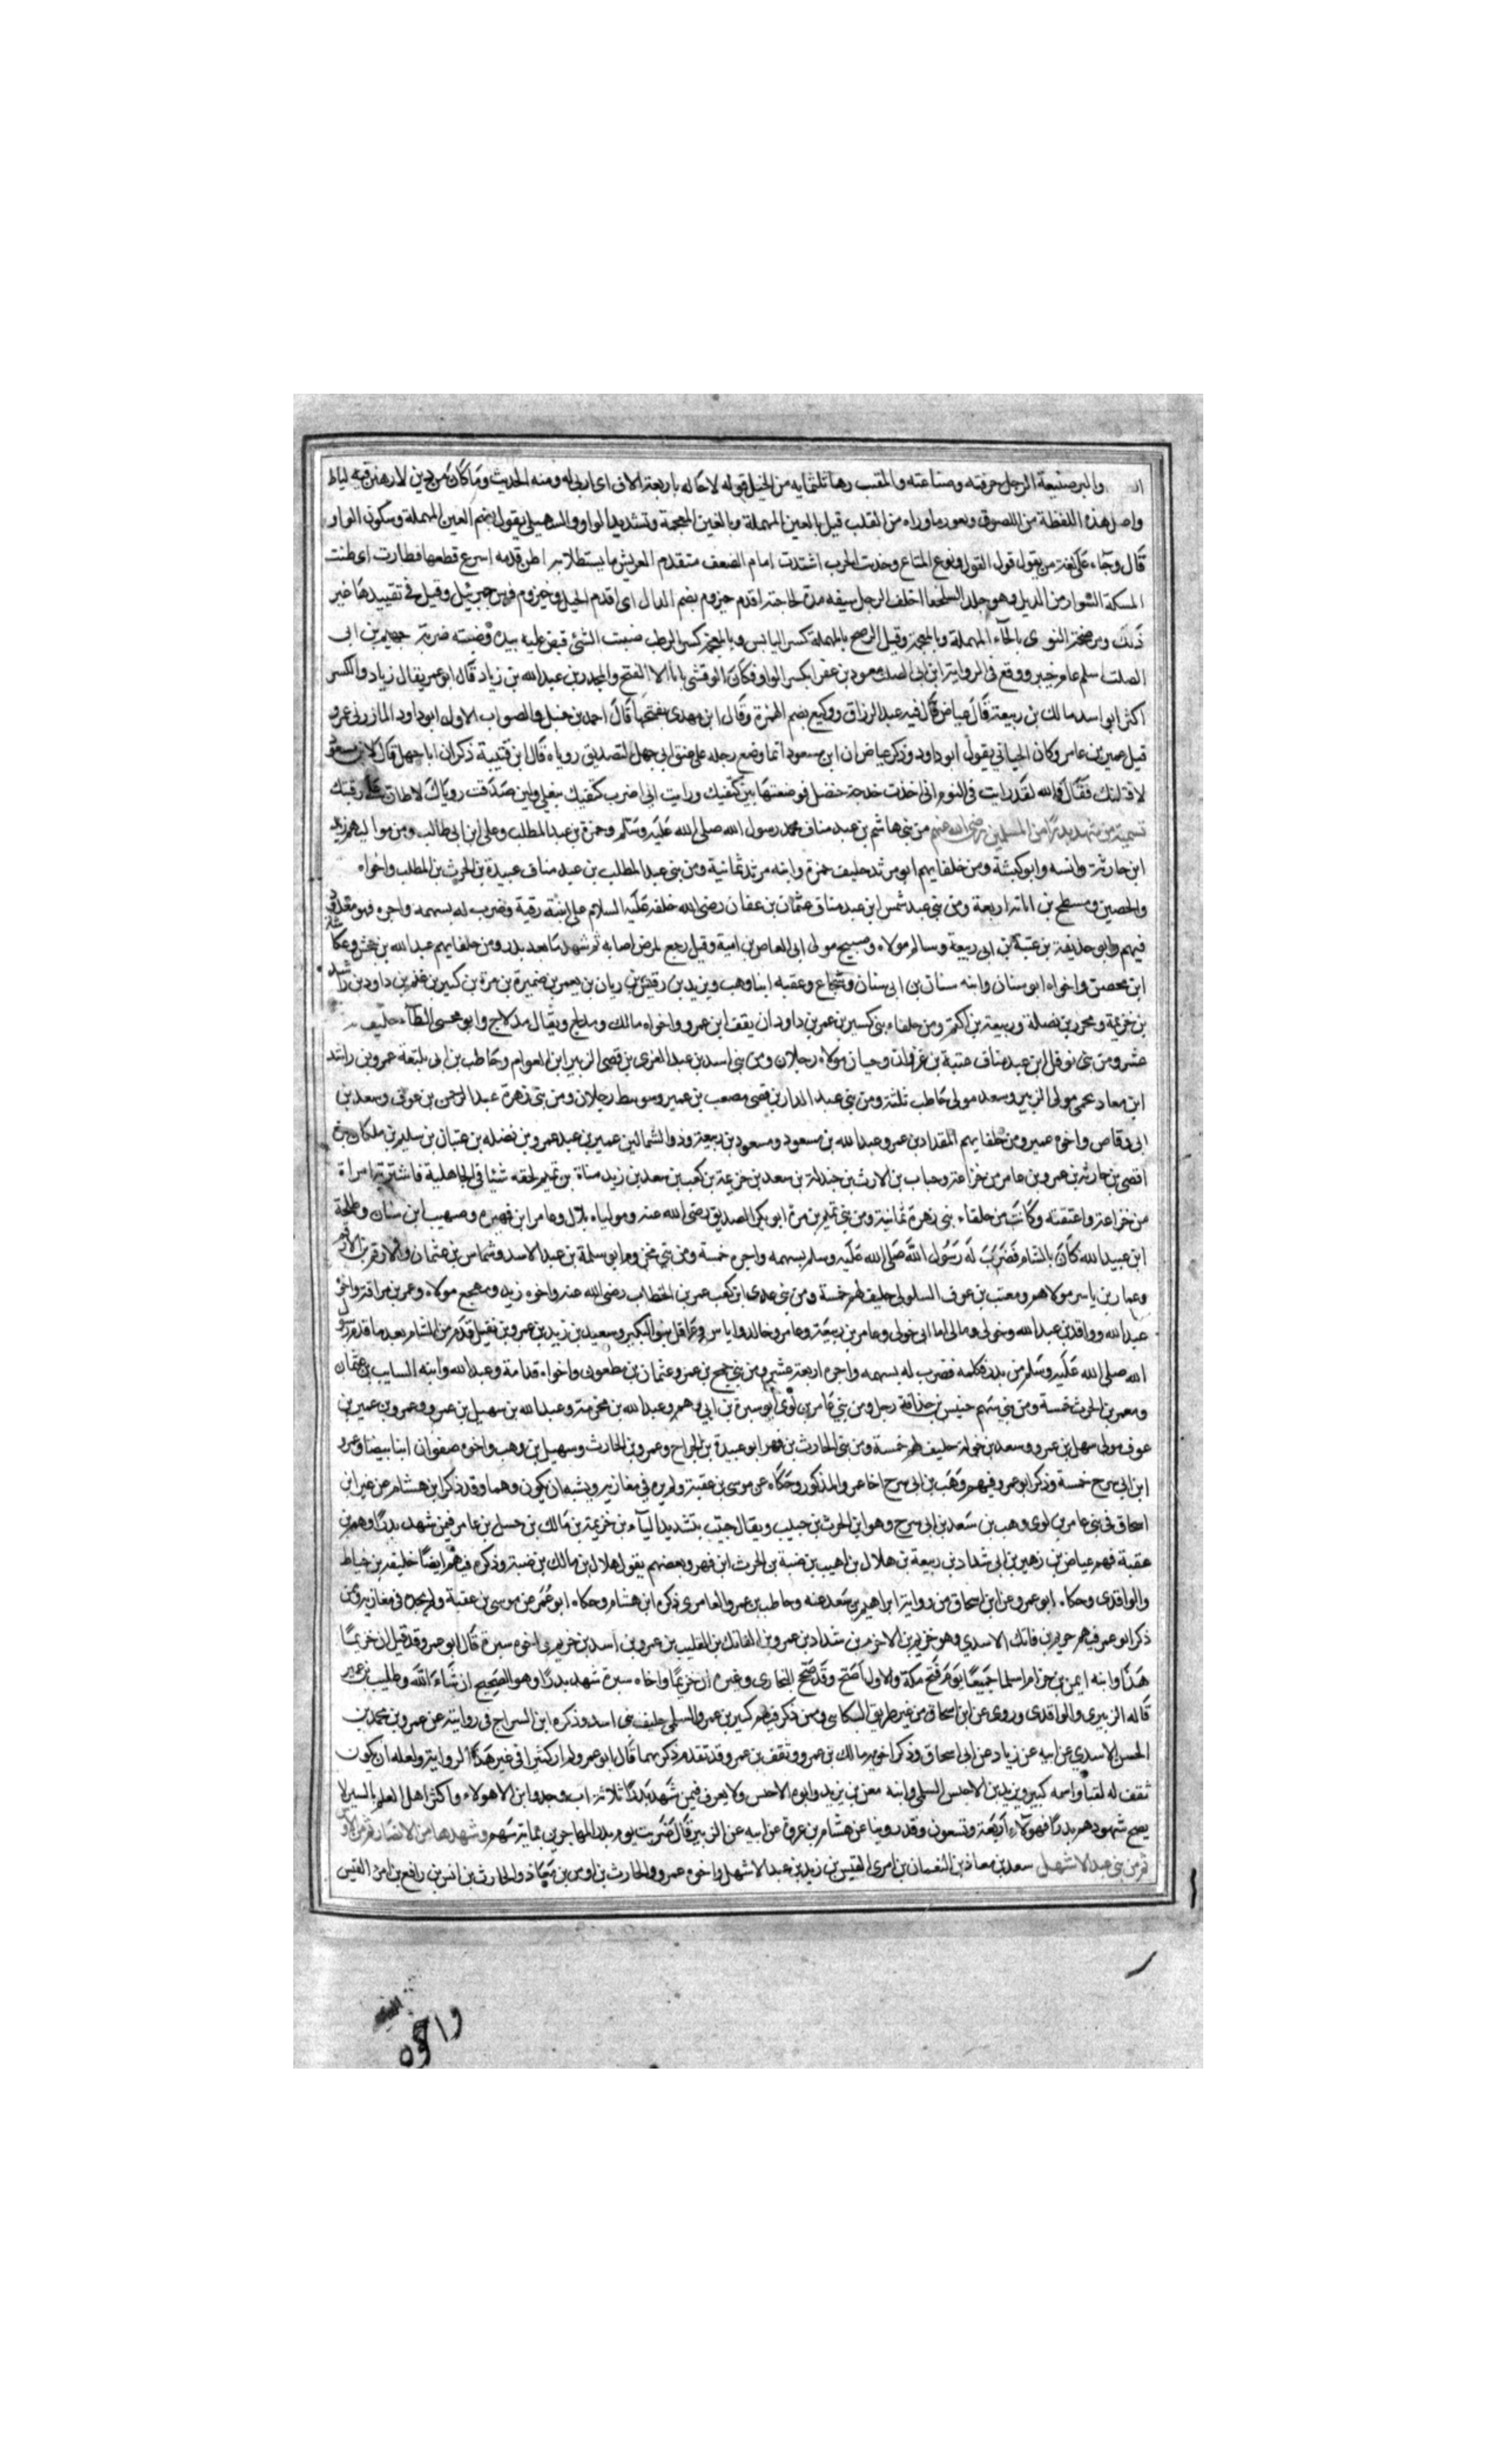 والبر ضيعة الرجل حرفته وصناعته والمقنب رهآ ثلثمايه من الخيل قوله لاحاه له باربعة الاف اى اربى له ومنه الحديث وما كان من دين لا رهن فيه لياط
واصل هذه اللفظة من اللصوق ونعور ماوراه من القلب قيل بالعين المهملة وبالغين المعجمة وتشديد الواو والسهيلى يقول بضم العين المهملة وسكون الواو
قال وجاء على لغة من يقول قول القول ونوع المتاع وخدت الحرب اشتدت امام الصف متقدم العريش ما يستظل به اطن قدمه اسرع قطعها فطارت اى طنت
المسكة السوار من الذيل وهو جلد السلحفا اخلف الرجل سيفه مدة لحاجته اقدم حيزوم بضم الدال اى اقدم الخيل وحيزوم فرس جبرئيل وقيل فى تقييدها غير
ذلك ومرضخة النوى بالحآء المهملة وبالمعجمة وقيل الرضح بالمهملة كسر اليابس وبالمعجمة كسر الرطب ضبثت الشئ قبض عليه بيده وضبثته ضربته جهيم بن ابى
الصلت اسلم عام خيبر ووقع فى الرواية ابن ابى الصلت معوذ بن عفرا بكسر الواو فكان الوقشى يابا الا الفتح والمجدر بن عبد الله بن زياد قال ابو عمر يقال زياد والكسر
اكثر ابو اسيد مالك بن ربيعة قال عياض قال فيه عبد الرزاق ووكيع بضم الهمزة وقال ابن مهدى بفتحها قال احمد بن حنبل والصواب الاول ابو داود المازنى عمرو
قيل عمير بن عامر وكان الجيانى يقول ابو داود وذكر عياض ان ابن مسعود انما وضع رجله على عنق ابى جهل لتصديق روياه قال ابن قتيبة ذكر ان ابا جهل قال لابن مسعود
لاقتلنك فقال والله لقد رايت فى النوم انى اخذت خدجة حنضل فوضعتها بين كتفيك ورايت انى اضرب كتفيك بنعلى ولين صدقت روياك لاطان على رقبتك
تسمية من شهد بدرا من المسلمين رضى الله عنهم من بنى هاشم بن عبد مناف محمد رسول الله صلى الله عليه وسلم وحمزة بن عبد المطلب وعلى ابن ابى طالب ومن مواليهم زيد
ابن حارثة وانسه وابو كبشة ومن حلفايهم ابو مرثد حليف حمزة وابنه مرثد ثمانية ومن بنى عبد المطلب بن عبد مناف عبيدة بن الحرث بن المطلب واخواه
والحصين ومسطح بن اثاثة اربعة ومن بنى عبد شمس ابن عبد مناف عثمان بن عفان رضى الله خلفه عليه السلام على ابنته رقية وضرب له بسهمه واجره فهو معدود
فيهم وابو حذيفة بن عتبة بن ابى ربيعة وسالم مولاه وصبيح مولى ابى العاص بن امية وقيل رجع لمرض اصابه ثم شهد ما بعد بدر ومن حلفايهم عبد الله بن جحش وعكاشة
ابن محصن واخواه ابو سنان وابنه سنان بن ابى سنان وشجاع وعقبه ابنا وهب ويزيد بن رقيش بن ريان بن يعمر بن ضميرة بن مرة بن كبير بن غنم بن داود بن راشد
بن خزيمة ومحرز بن نضلة وربيعة بن اكثم ومن حلفاء بنى كسير بن عمر بن داودان يقف ابن عمرو واخواه مالك ومدلج ويقال مدلاج وابو محسى الطآء حليف
عشر ومن بنى نوفل ابن عبد مناف عتبة بن غزوان وحيان مولاه رجلان ومن بنى اسد بن عبد العزى بن قصى الزبير ابن العوام وحاطب بن ابى بلتعه عمرو بن راشد
ابن معاد يحمى مولى الزبير وسعد مولى حاطب ثلثة ومن بنى عبد الدار بن قصى مصعب بن عمير وسوسط رجلان ومن بنى زهرة عبد الرحمن بن عوف وسعد بن
ابى وقاص واخوه عمير ومن حلفايهم المقداد بن عمرو وعبد الله بن مسعود ومسعود بن ربيعة وذو الشمالين عمير بن عبد عمرو بن نضله بن عتبان بن سليم بن ملكان بن
افصى بن حارثه بن عمرو بن عامر من خزاعة وحباب بن الارث بن جندلة بن سعد بن خزيمة بن كعب بن سعد بن زيد مناة بن تميم لحقه شيئا فى الجاهلية فاشترته امراة
من خزاعة واعتقته وكانت من حلفاء بنى زهرة ثمانية ومن بنى تميم بن مرة ابو بكر الصديق رضى الله عنه ومولياه بلال وعامر ابن فهيره وصهيب ابن سنان وطلحة
ابن عبيد الله كان بالشام فضرب له رسول الله صلى الله عليه وسلم بسهمه واجره خمسة ومن بنى مخزوم ابو سلمة بن عبد الاسد وشماس بن عثمان والارقم بن الارقم
وعمار بن ياسر مولاهم ومعتب بن عوف السلولى حليف لهم خمسة ومن بنى عدى ابن كعب عمر بن الخطاب رضى الله عنه واخوه زيد ومهجع مولاه وعمرو بن سراقة واخو
عبد الله وواقد بن عبد الله وخولى ومالى اما ابى خولى وعامر بن ربيعة وعامر وخالد واياس وعاقل بنوا البكير وسعيد بن زيد بن عمرو بن نفيل قدم من الشام بعد ما قدم رسول
الله صلى الله عليه وسلم من بدر فكلمه فضرب له بسهمه واجره اربعة عشر ومن بنى جمح بن عمرو عثمان بن مظعون واخواه قدامة وعبد الله وابنه السايب بن عثمان
ومعمر بن الحرث خمسة ومن بنى سهم خنيس بن حذافة رجل ومن بنى عامر بن لوى ابو سبرة بن ابى رهم وعبد الله بن مخرمة وعبد الله بن سهيل بن عمرو وعمرو بن عمير بن
عوف مولى سهل بن عمرو وسعد بن خولة حليف لهم خمسة ومن بنى الحارث بن فهر ابو عبيدة بن الجراح وعمرو بن الحارث وسهيل بن وهب واخوه صفوان ابنا بيضا وعمرو
ابن ابى سرح خمسة وذكر ابو عمرو فيهم وهب بن ابى سرح اخا عمر والمذكور وحكاه عن موسى بن عقبة ولم يره فى مغازيه ويشبه ان يكون وهما وقد ذكر ابن هشام عن غير ابن
اسحاق فى بنى عامر بن لوى وهب بن سعد بن ابى سرح وهو ابن الحرث بن حبيب ويقال حبيب بتشديد اليآء بن خزيمة بن مالك بن حسل بن عامر فيمن شهد بدرا وهم بن
عقبة فهم عياض بن زهير بن ابى شداد بن ربيعة بن هلال بن اهيب بن ضبة بن الحرث ابن فهر وبعضهم يقول هلال بن مالك بن ضبة وذكره فيهم ايضا خليفة بن خياط
والواقدى وحكاه ابو عمرو عن ابن اسحاق من رواية ابراهيم بن سعد عنه وحاطب بن عمرو العامرى ذكره ابن هشام وحكاه ابو عمر عن موسى بن عقبة ولم نجده فى مغازيه وممن
ذكر ابو عمر فيهم خريم بن فاتك الاسدى وهو خريم بن الاخرم بن شداد بن عمرو بن الفاتك بن القليب بن عمرو بن اسد بن خزيمه اخوه سبرة قال ابو عمر وقد قيل ان خريما
هذا وابنه ايمن بن خزام اسلما جميعا يوم فتح مكة والاول اصح وقد صحح البخارى وغيره ان خريما واخاه سبرة شهد بدرا وهو الصحيح ان شاء الله وطليب بن عمير
قاله الزبيرى والواقدى وروى عن ابن اسحاق من غير طريق البكاى وممن ذكر فيهم كبير بن عمرو السلمى حليف بنى اسد وذكره ابن السراج فى روايته عن عمرو بن محمد بن
الحسن الاسدى عن ابيه عن زياد عن ابى اسحاق وذكر اخويه مالك بن عمرو وثقف بن عمرو قد تقدم ذكرهما قال ابو عمر ولم ار كثيرا فى غير هذا الرواية ولعله ان يكون
ثقف له لقبا واسمه كبير ويزيد بن الاخنس السلمى وابنه معن بن يزيد وابوه الاخنس ولا يعرف فيمن شهد بدرا ثلاثة اب وجد وابن الا هولاء واكثر اهل العلم بالسير لا
يصح شهودهم بدرا فهولاء اربعة وتسعون وقد روينا عن هشام بن عروة عن ابيه عن الزبير قال ضربت يوم بدر المهاجرين بماية سهم وشهدها من الانصار ثم من الاوس
ثم من بنى عبد الاشهل سعد بن معاذ بن النعمان بن امرى القيس بن زيد بن عبد الاشهل واخوه عمرو والحارث بن اوس بن معاذ والحارث بن انس بن رافع بن امرؤ القيس